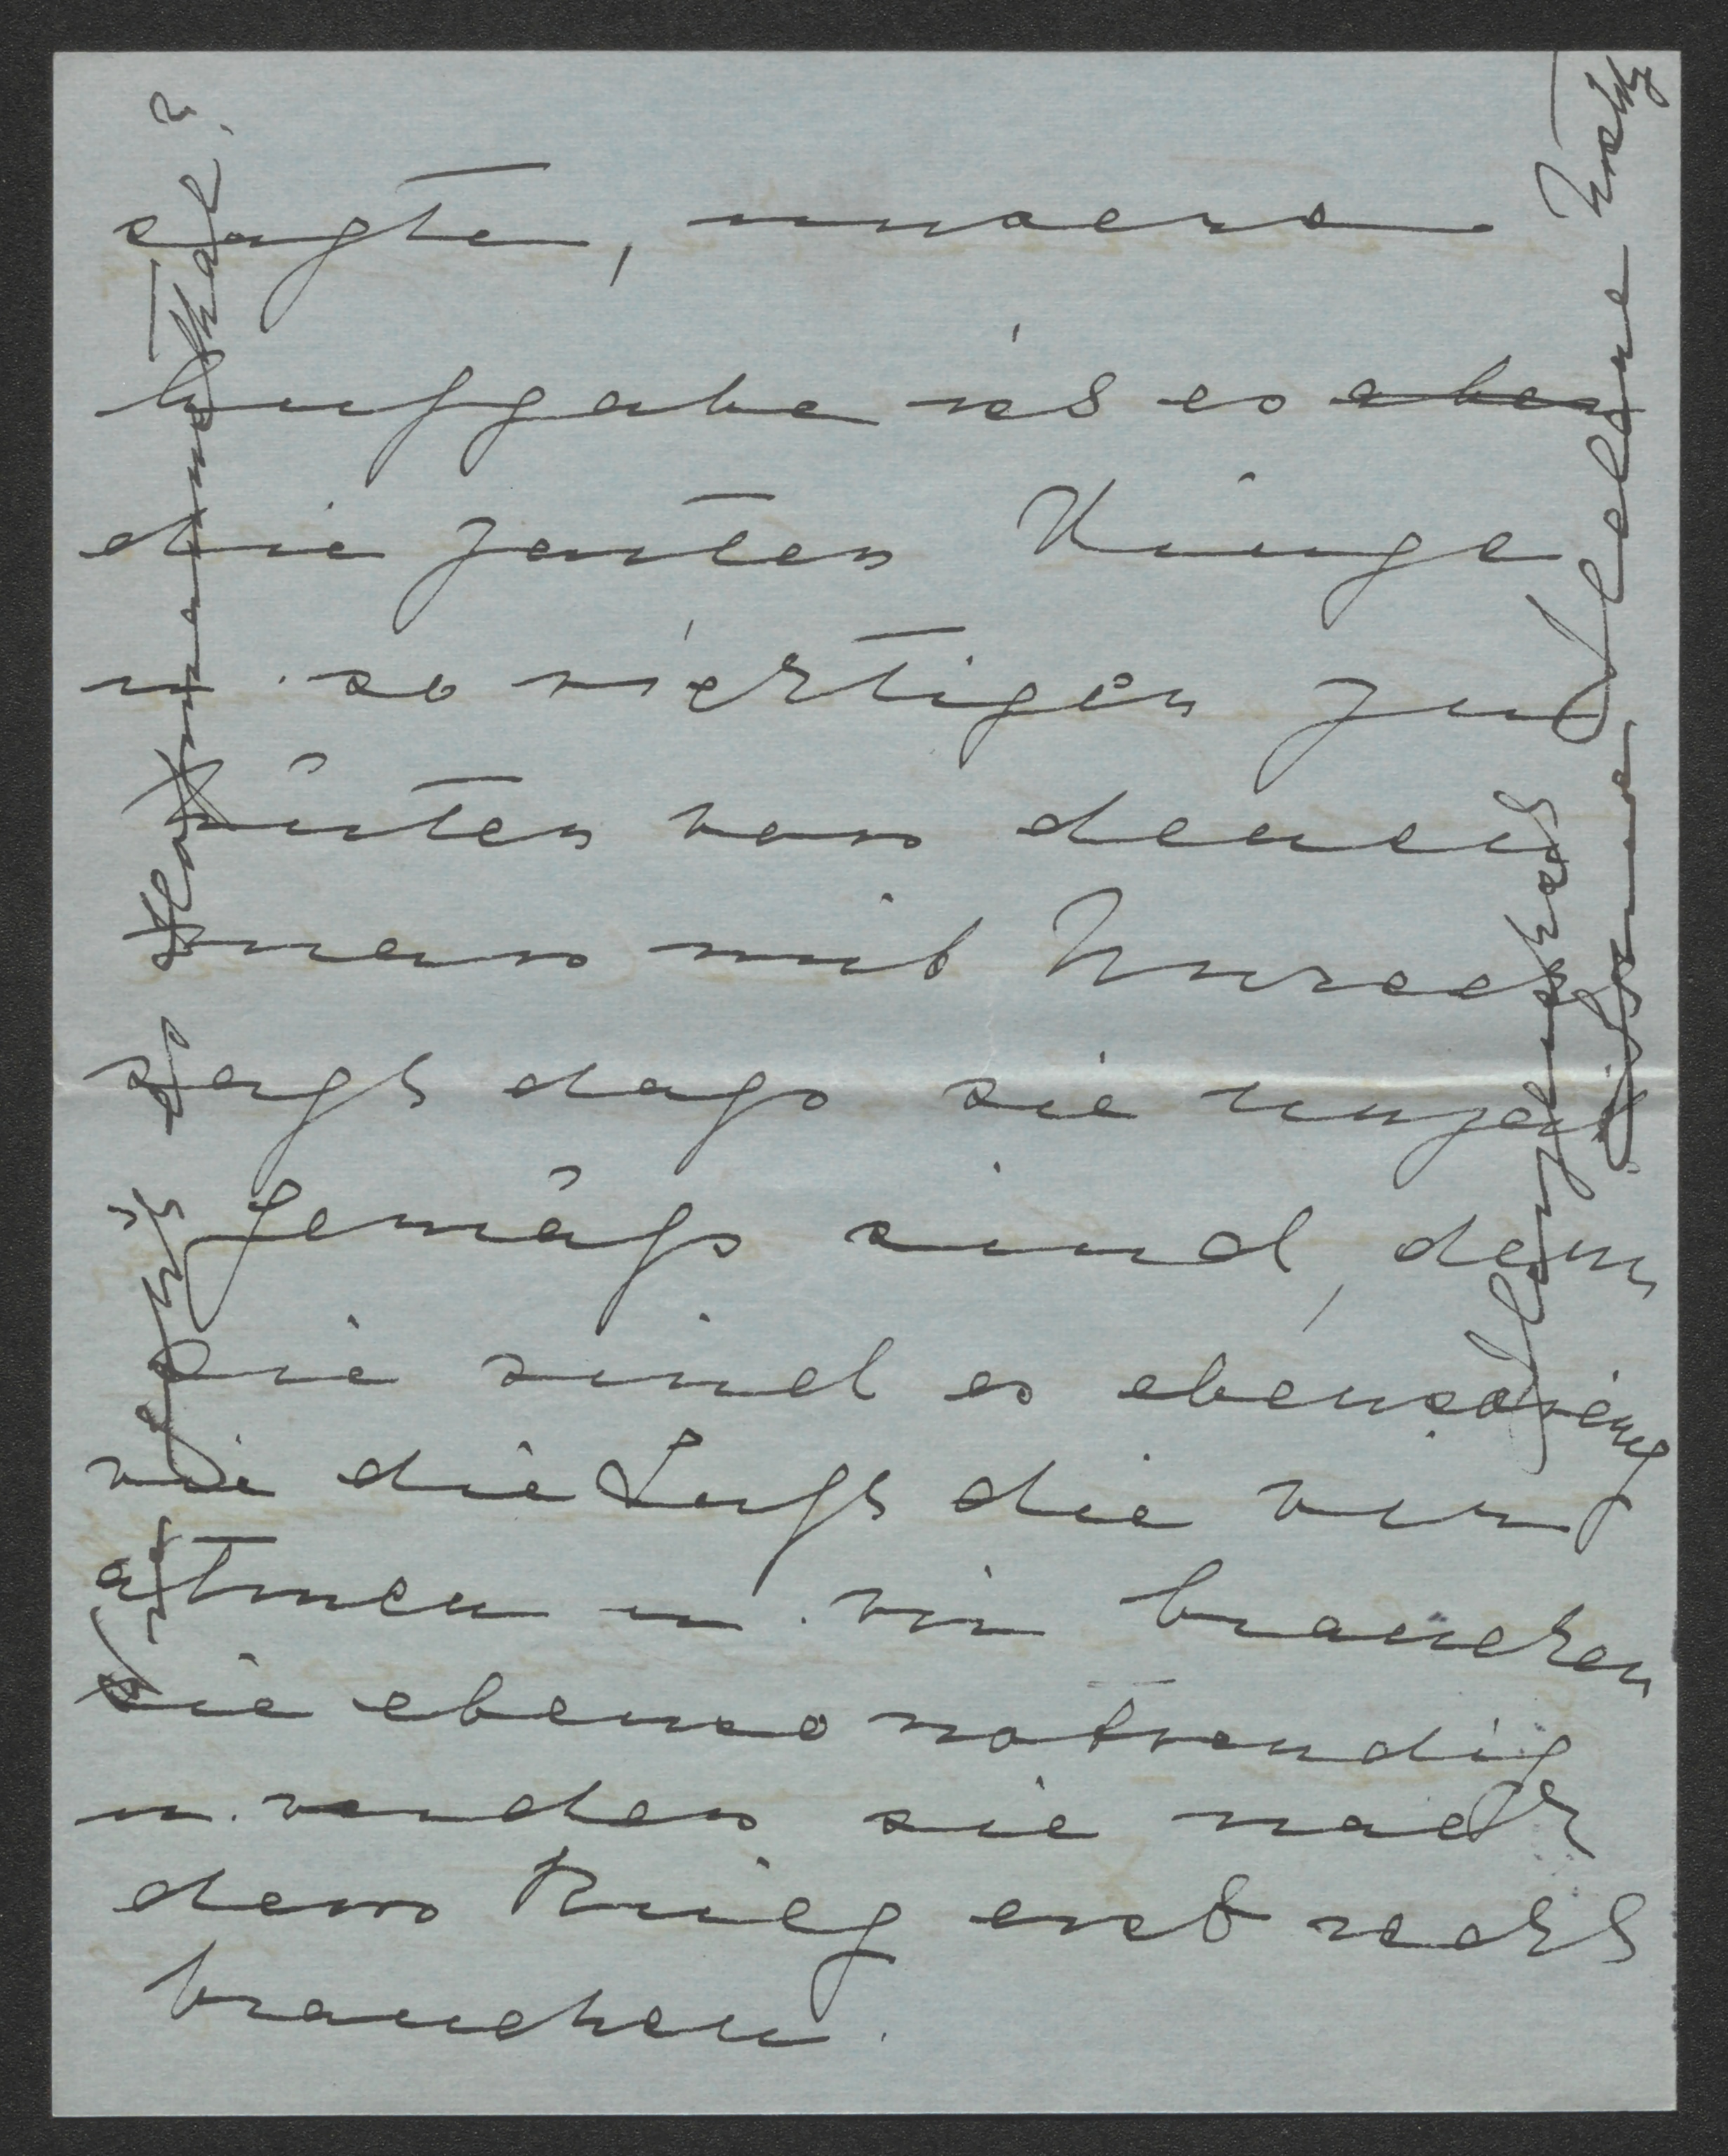 sagte, unsere
Aufgabe ist es
die zarten Dinge
u. so wichtigen zu
hüten von denen
man mit Unrecht
sagt dass sie unzeit
gemäss sind, denn
sie sind es ebensowenig
wie die Luft die wir
atmen u. wir brauchen
sie ebenso notwendig
u. werden sie nach
dem Krieg erst recht
brauchen.
Hofmannsthal?
Helene Nostitz